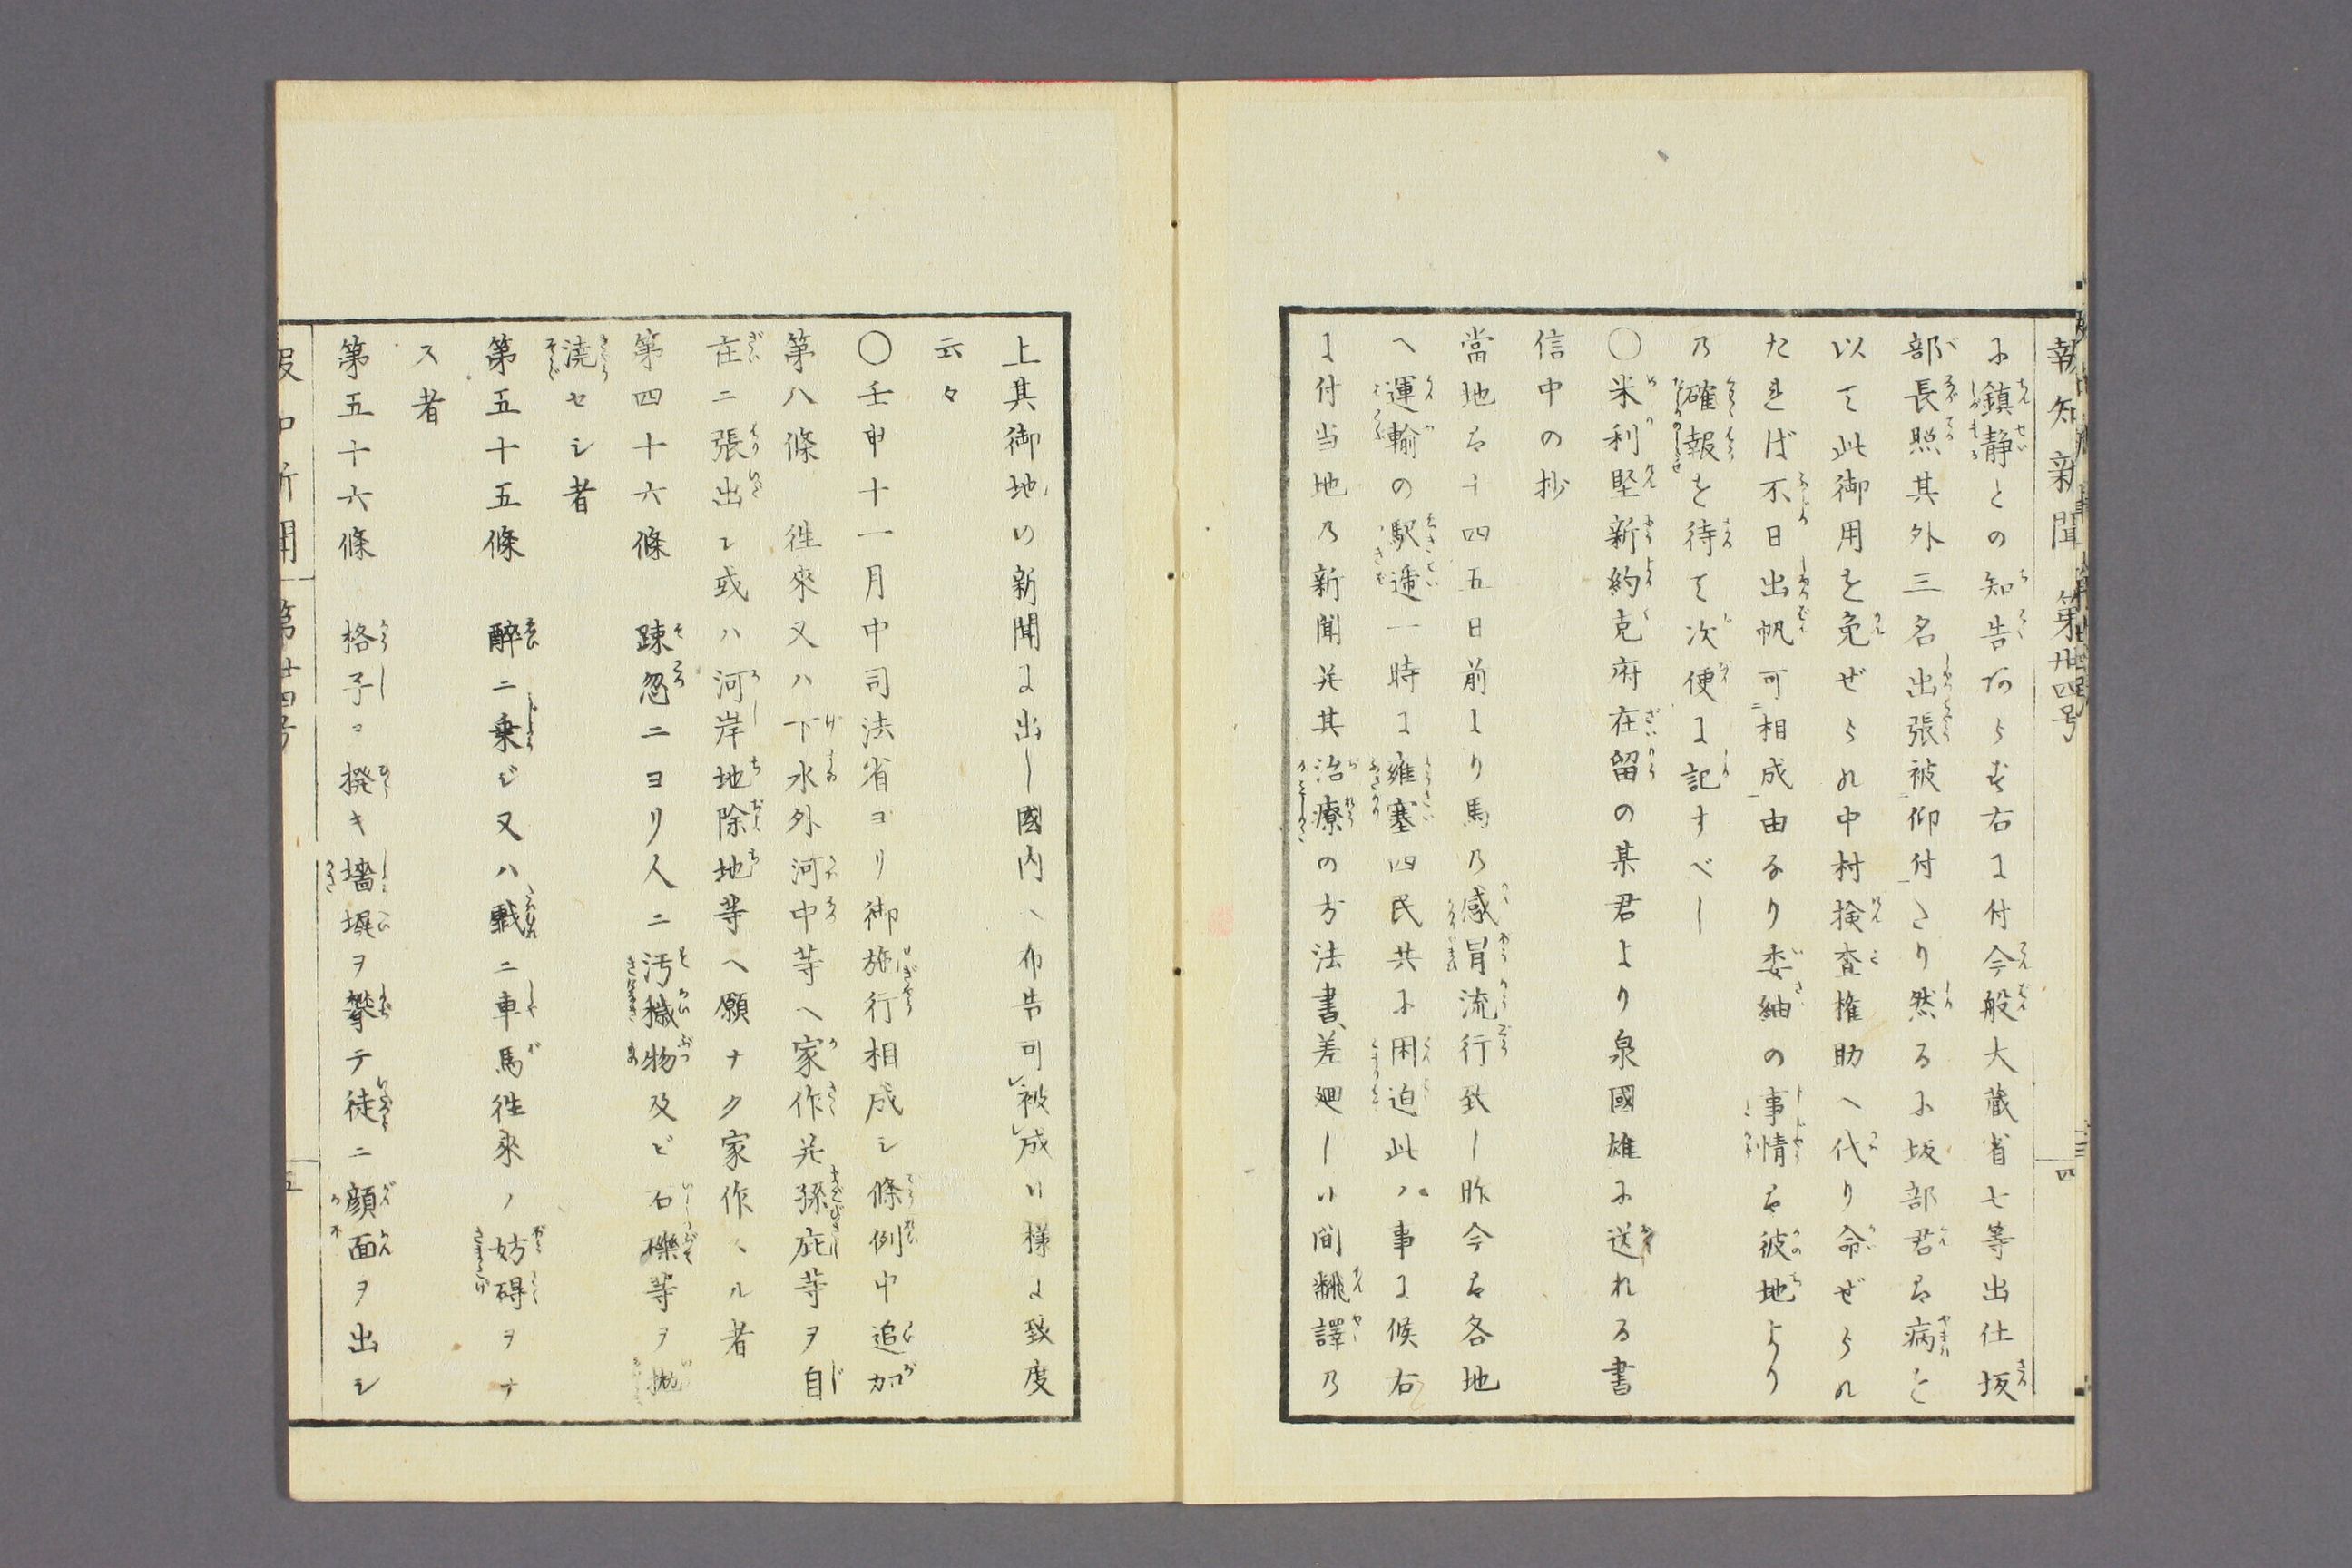 報知新聞 第廿四号 四
に鎮静との知告あらず右に付今般大蔵省七等出仕坂
部長照其外三名出張被仰付たり然るに坂部君は病を
以て此御用を免ぜられ中村検査権助へ代り命ぜられ
たれば不日出帆可相成由なり委細の事情は彼地より
の確報を待て次便に記すべし
○米利堅新約克府在留の某君より泉國雄に送れる書
信中の抄
當地は十四五日前より馬の感冒流行致し昨今は各地
へ運輸の駅逓一時に雍塞四民共に困迫此ノ事に候右
に付当地の新聞并其治療の方法書差廻し候間飜譯の
上其御地の新聞に出し國内へ布告可被成候様に致度
云々
○壬申十一月中司法省ヨリ御施行相成シ條例中追加
第八條 徃來又ハ下水外河中等ヘ家作并孫庇等ヲ自
在ニ張出シ或ハ河岸地除地等ヘ願ナク家作スル者
第四十六條 踈忽ニヨリ人ニ汚穢物及ビ石礫等ヲ抛
澆セシ者
第五十五條 醉ニ乗ジ又ハ戱ニ車馬徃來ノ妨碍ヲナ
ス者
第五十六條 格子ヲ撥キ墻塀ヲ攀テ徒ニ顔面ヲ出シ
報知新聞 第廿四号 五